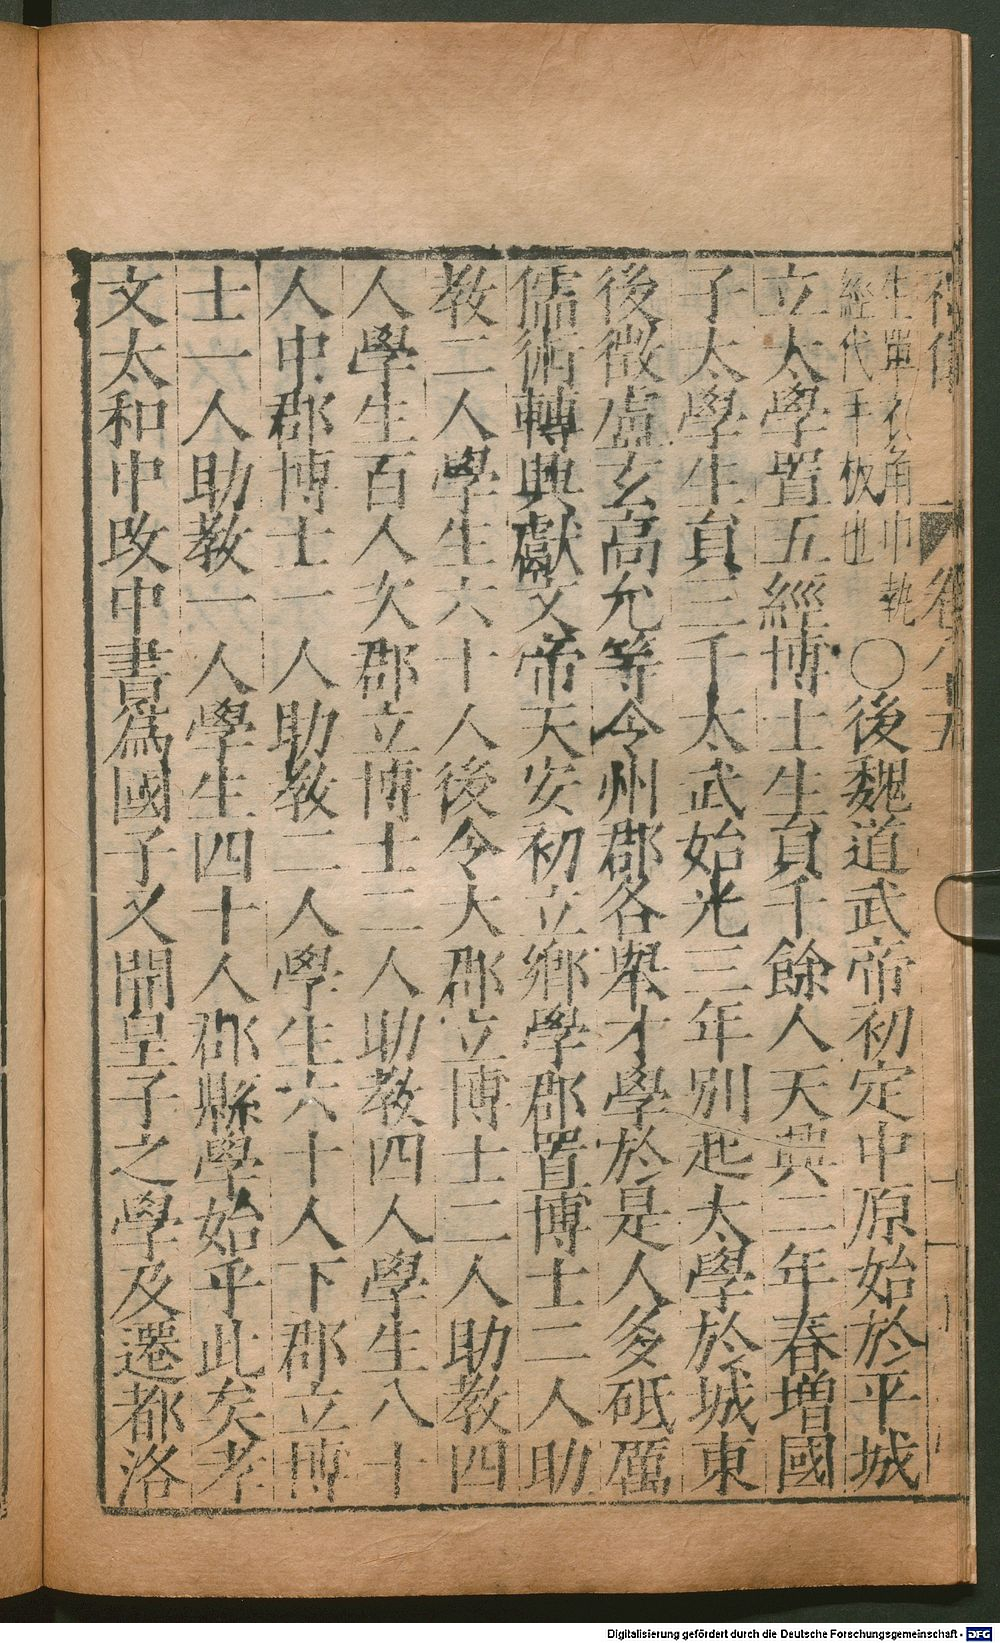 生單衣角巾執
經代手板也
○後魏道武帝初定中原始於平城
立太學置五經博士生員千餘人天興二年春增國
子太學生員三千太武始光三年別起太學於城東
後徵盧玄高允等令州郡各舉才學於是人多砥礪
儒術轉興獻文帝天安初立鄉學郡置博士二人助
教二人學生六十人後令大郡立博士二人助教四
人學生百人次郡立博士二人助教四人學生八十
人中郡博士一人助教二人學生六十人下郡立博
士一人助教一人學生四十人郡縣學始乎此矣孝
文太和中改中書爲國子又開皇子之學及遷都洛
Digitalisierung gefördert durch die Deutsche Forschungsgemeinschaft - DFG